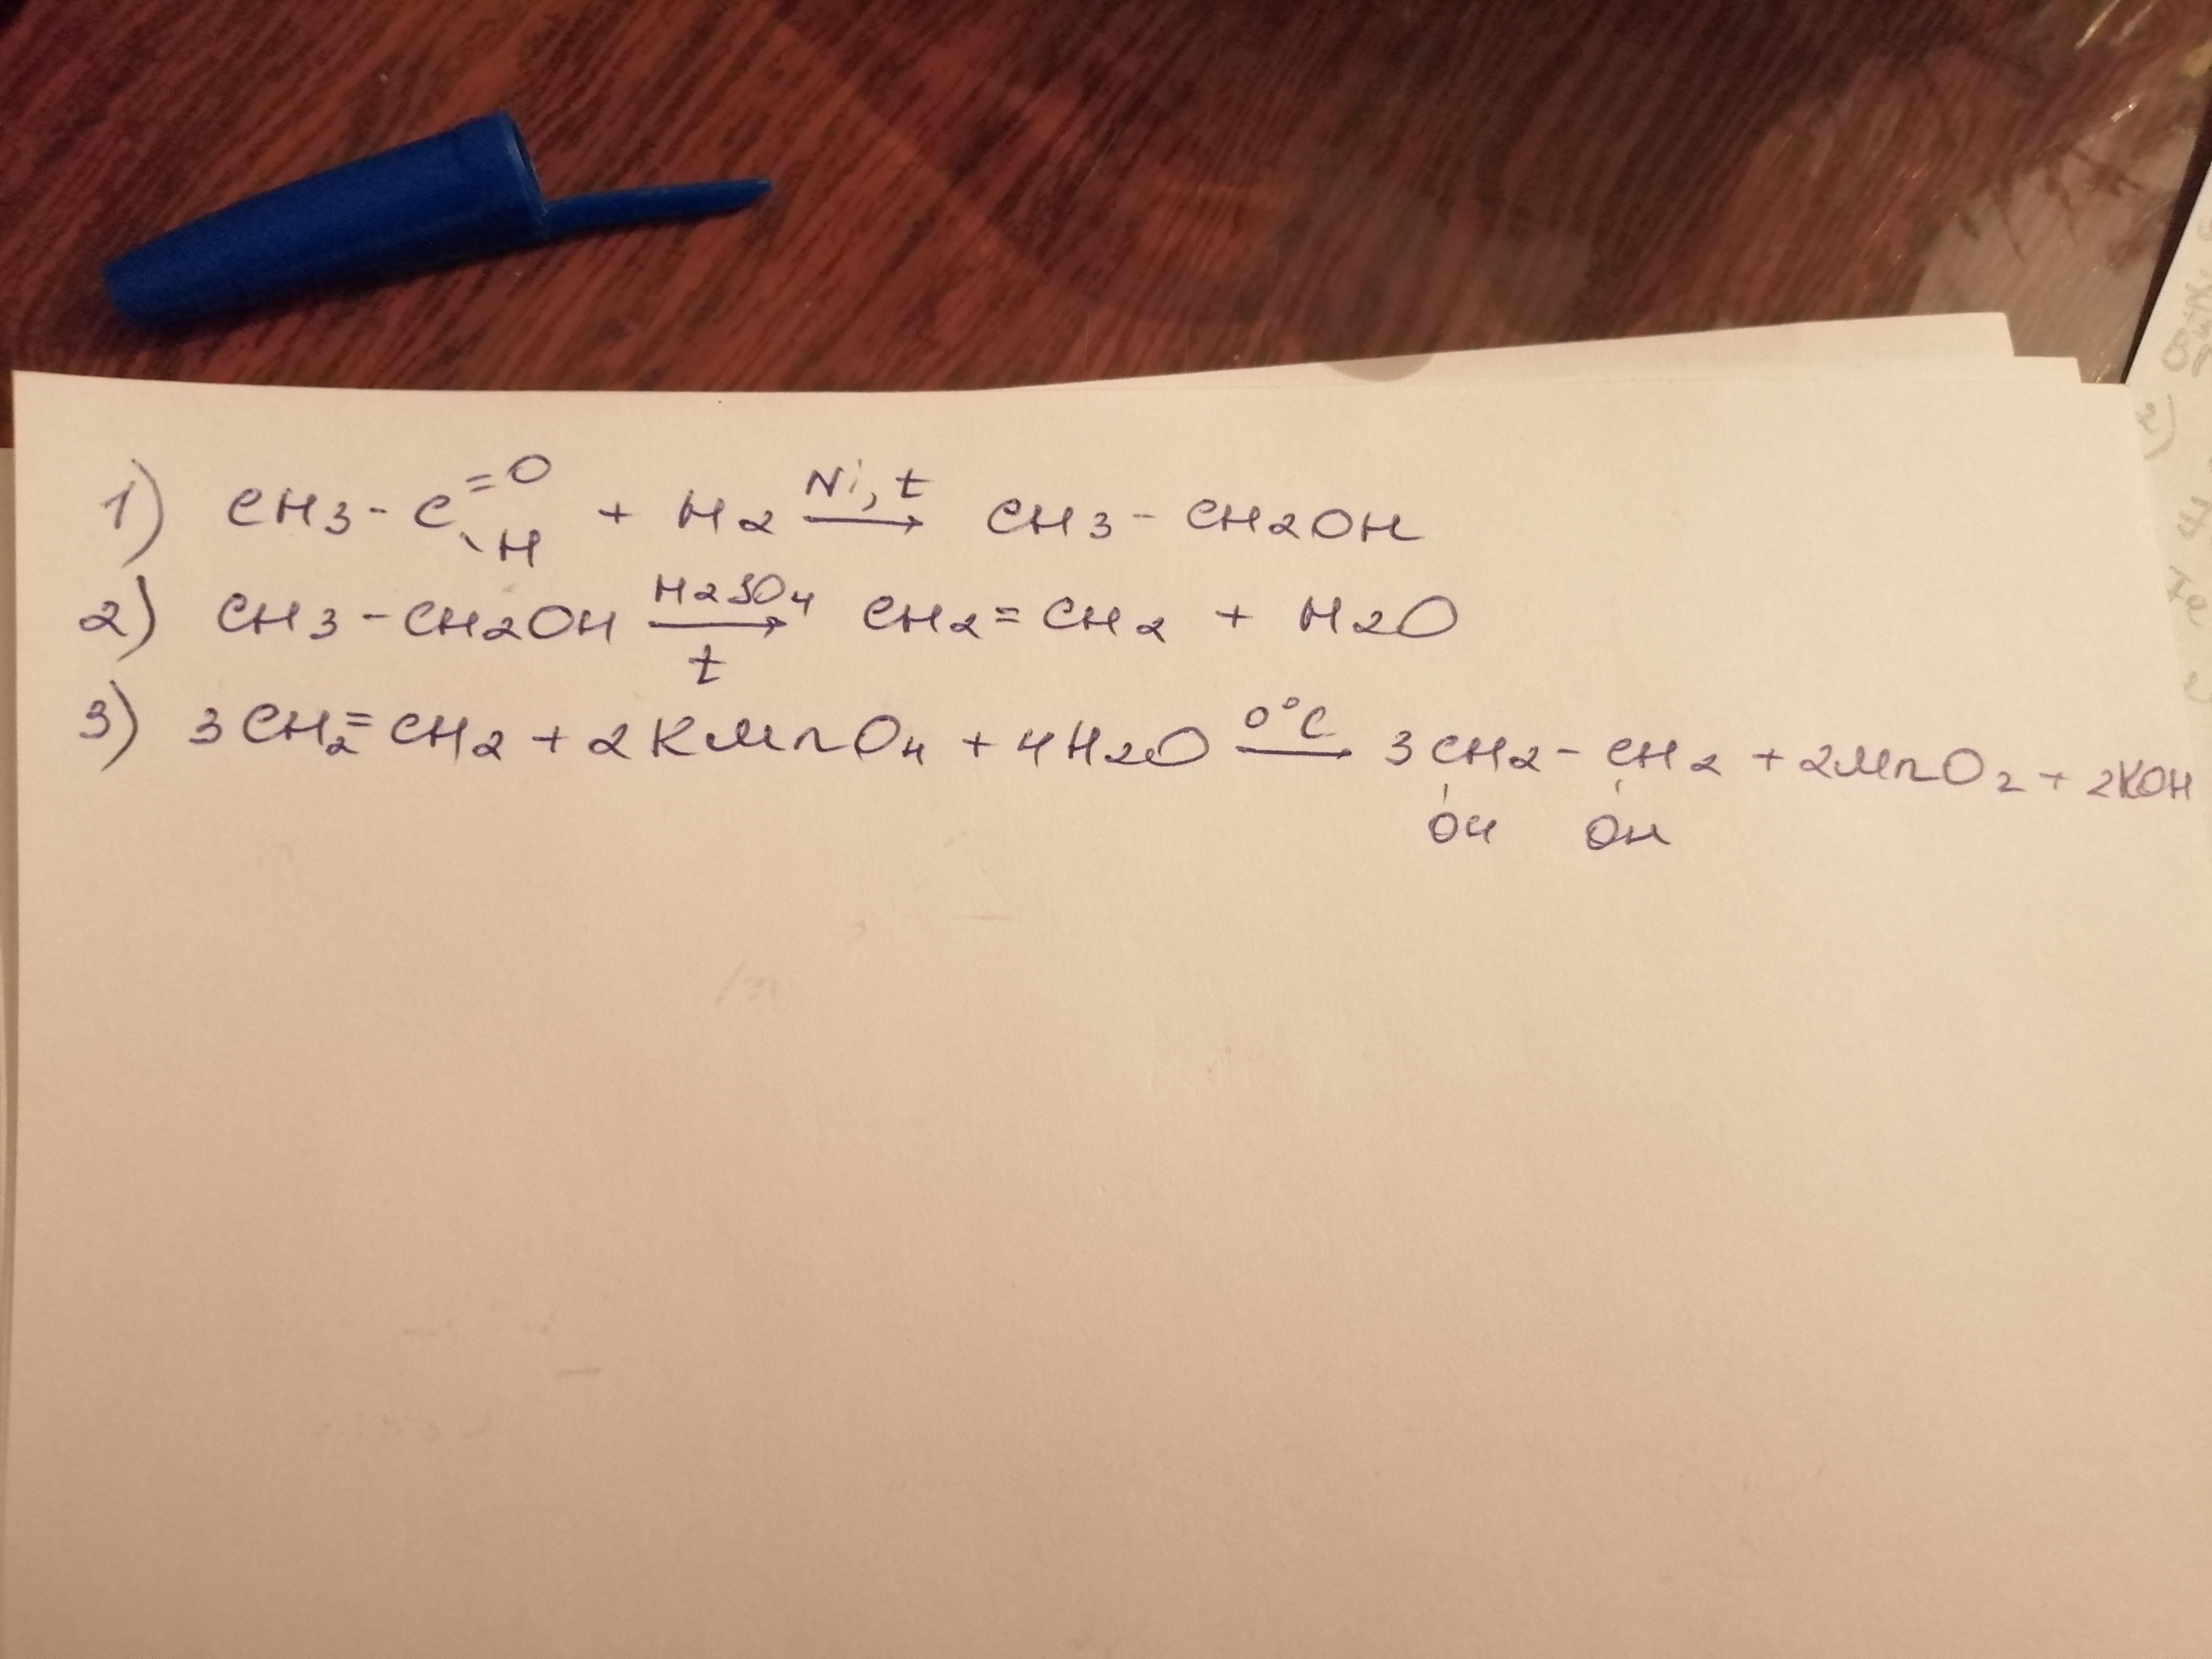 1) CH3 - C =O \H + H2 Ni, t → CH3 - CH2OH
2) CH3 - CH2OH H2SO4 → t CH2 = CH2 + H2O
3) 3CH2 = CH2 + 2KMnO4 + 4H2O 0°C → 3CH2 - CH2 + 2MnO2 + 2KOH
OH OH